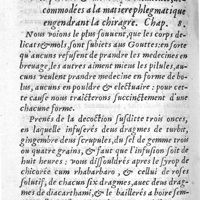 commodées a la matiere phlegmatique
engendrant la chiragre. Chap. 8.
Nous voions le plus souuent, que les corps de-
licats & mols, sont subiets aux Gouttes: en sorte
qu'aucuns refusent de prendre les medecines en
breuage, les autres aiment mieux les pilules, au-
cuns veulent prendre medecine en forme de bo-
lus, aucuns en pouldre & electuaire: pour ces-
te cause nous traicterons succinctement d'une
chacune forme.
Prenés de la decoction susdite trois onces,
en laquelle infuserés deux dragmes de turbit,
gingembre deux scrupules, du sel de gemme trois
ou quatre grains, & faut que l'infusion soit de
huit heures: vous dissouldrés apres le syrop de
chicorée cum rhabarbaro, & celluy de roses
solutif, de chacun six dragmes, auec deux drag-
mes de diacarthami, & le baillerés a boire sem-